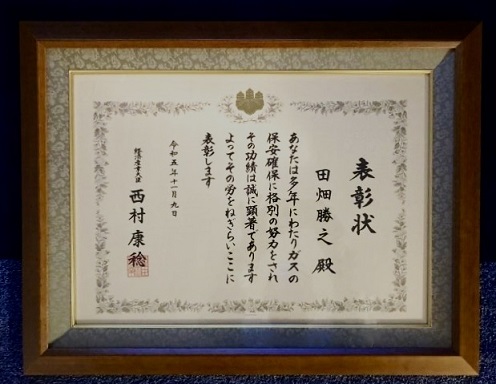 表彰状
田畑勝之 殿
あなたは多年にわたりガスの
保安確保に格別の努力をされ
その功績は誠に顕著であります
よってその労をねぎらいここに
表彰します
令和五年十一月九日
経済産業大臣 西村康稔